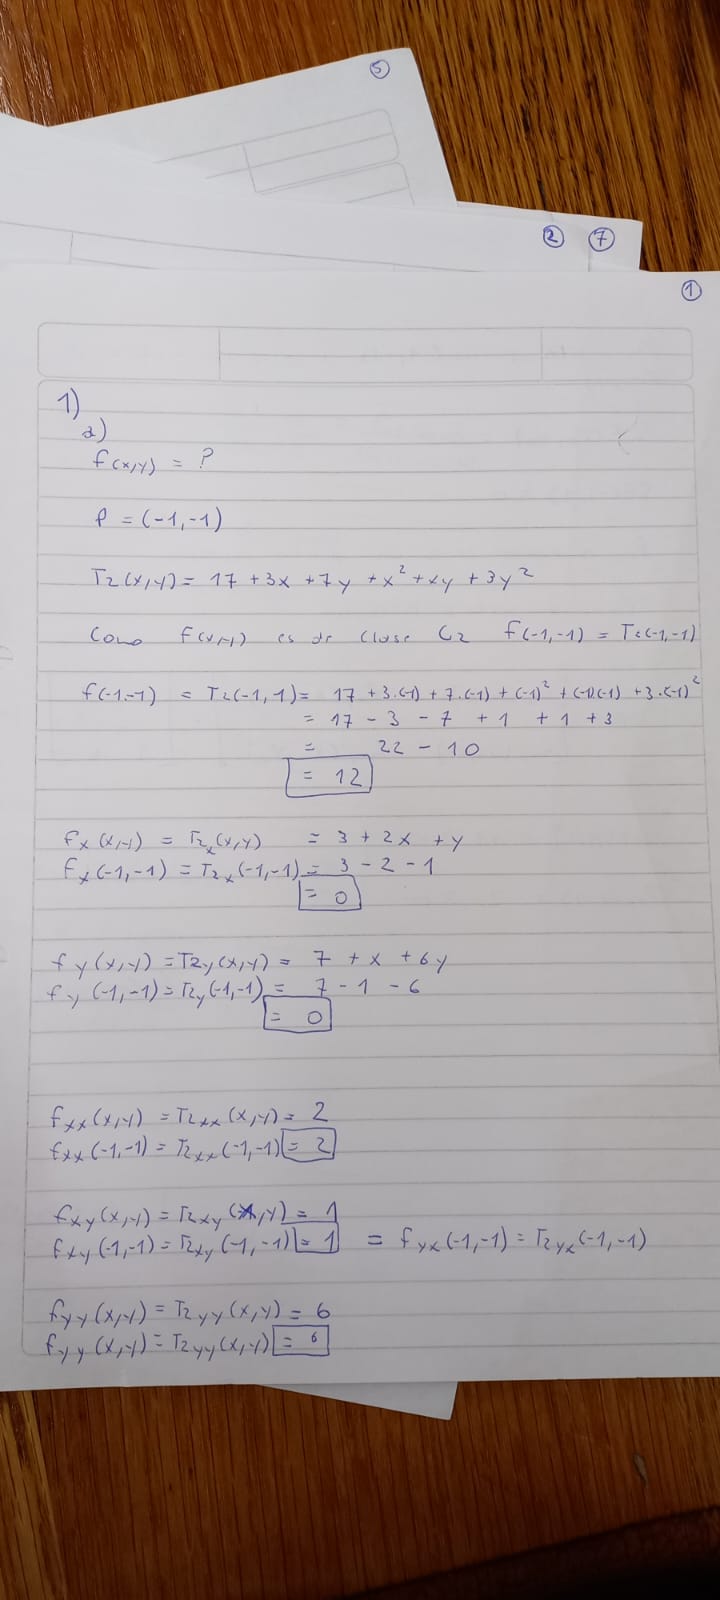 5
2 7
1
1)
a)
f(x,y) = ?
P = (-1,-1)
T2(x,y) = 17 + 3x + 7y + x² + xy + 3y²
Como f(x,y) es de clase C2 f(-1,-1) = T2(-1,-1)
f(-1,-1) = T2(-1,1) = 17 + 3.(-1) + 7.(-1) + (-1)² + (-1)(-1) + 3.(-1)²
= 17 - 3 - 7 + 1 + 1 + 3
= 22 - 10
= 12
fx(x,y) = T2x(x,y) = 3 + 2x + y
fx(-1,-1) = T2x(-1,-1) = 3 - 2 - 1
= 0
fy(x,y) = T2y(x,y) = 7 + x + 6y
fy(-1,-1) = T2y(-1,-1) = 7 - 1 - 6
= 0
fxx(x,y) = T2xx(x,y) = 2
fxx(-1,-1) = T2xx(-1,-1) = 2
fxy(x,y) = T2xy(x,y) = 1
fxy(-1,-1) = T2xy(-1,-1) = 1 = fyx(-1,-1) = T2yx(-1,-1)
fyy(x,y) = T2yy(x,y) = 6
fyy(x,y) = T2yy(x,y) = 6